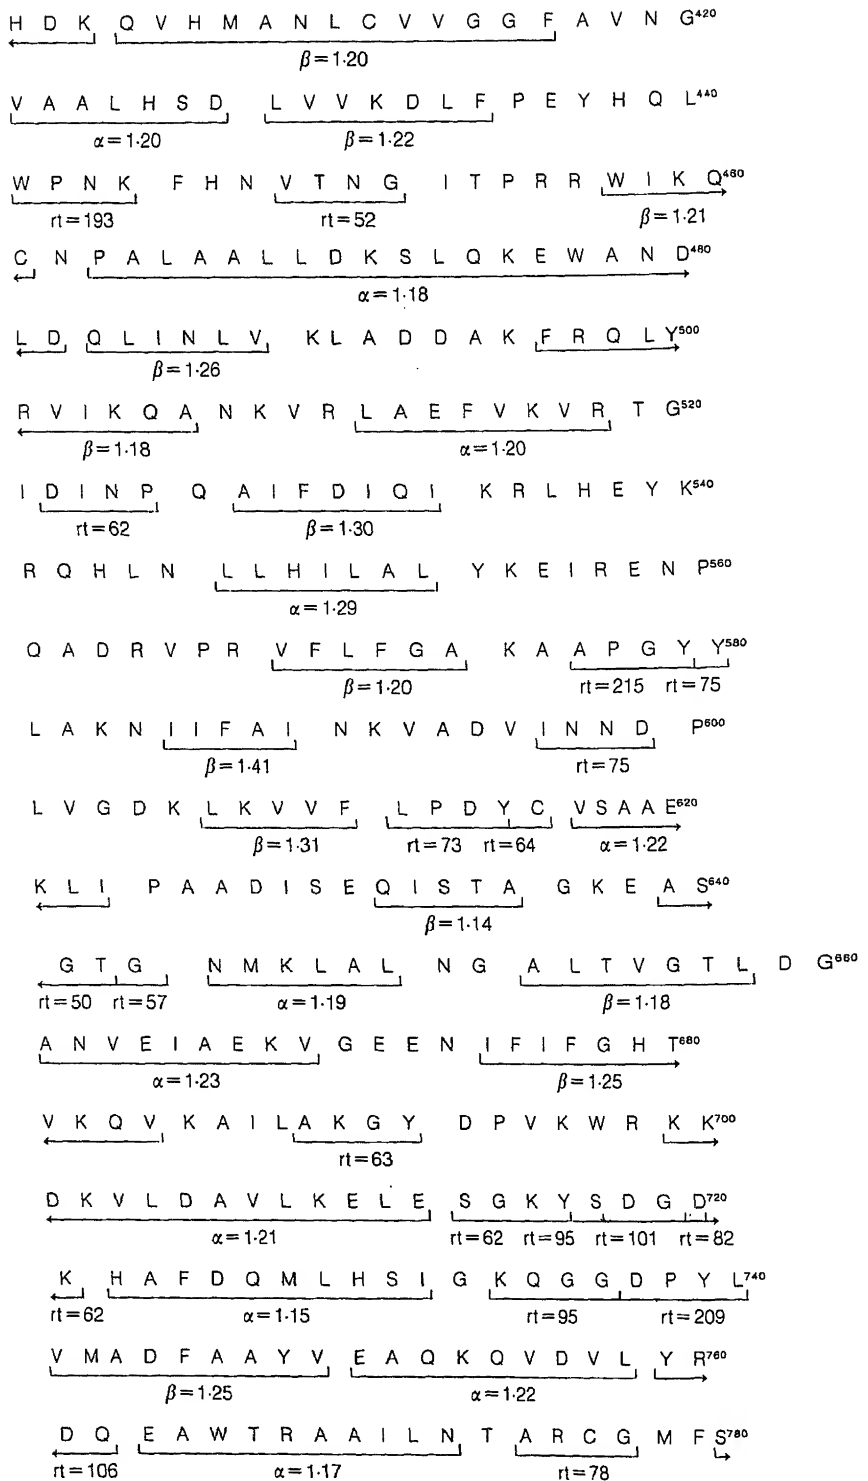 H D K Q V H M A N L C V V G G F A V N G420
β=1·20
V A A L H S D L V V K D L F P E Y H Q L440
α=1·20 β=1·22
W P N K F H N V T N G I T P R R W I K Q460
rt=193 rt=52 β=1·21
C N P A L A A L L D K S L Q K E W A N D480
α=1·18
L D Q L I N L V K L A D D A K F R Q L Y500
β=1·26
R V I K Q A N K V R L A E F V K V R T G520
β=1·18 α=1·20
I D I N P Q A I F D I Q I K R L H E Y K540
rt=62 β=1·30
R Q H L N L L H I L A L Y K E I R E N P560
α=1·29
Q A D R V P R V F L F G A K A A P G Y Y580
β=1·20 rt=215 rt=75
L A K N I I F A I N K V A D V I N N D P600
β=1·41 rt=75
L V G D K L K V V F L P D Y C V S A A E620
β=1·31 rt=73 rt=64 α=1·22
K L I P A A D I S E Q I S T A G K E A S640
β=1·14
G T G N M K L A L N G A L T V G T L D G660
rt=50 rt=57 α=1·19 β=1·18
A N V E I A E K V G E E N I F I F G H T680
α=1·23 β=1·25
V K Q V K A I L A K G Y D P V K W R K K700
rt=63
D K V L D A V L K E L E S G K Y S D G D720
α=1·21 rt=62 rt=95 rt=101 rt=82
K H A F D Q M L H S I G K Q G G D P Y L740
rt=62 α=1·15 rt=95 rt=209
V M A D F A A Y V E A Q K Q V D V L Y R760
β=1·25 α=1·22
D Q E A W T R A A I L N T A R C G M F S780
rt=106 α=1·17 rt=78